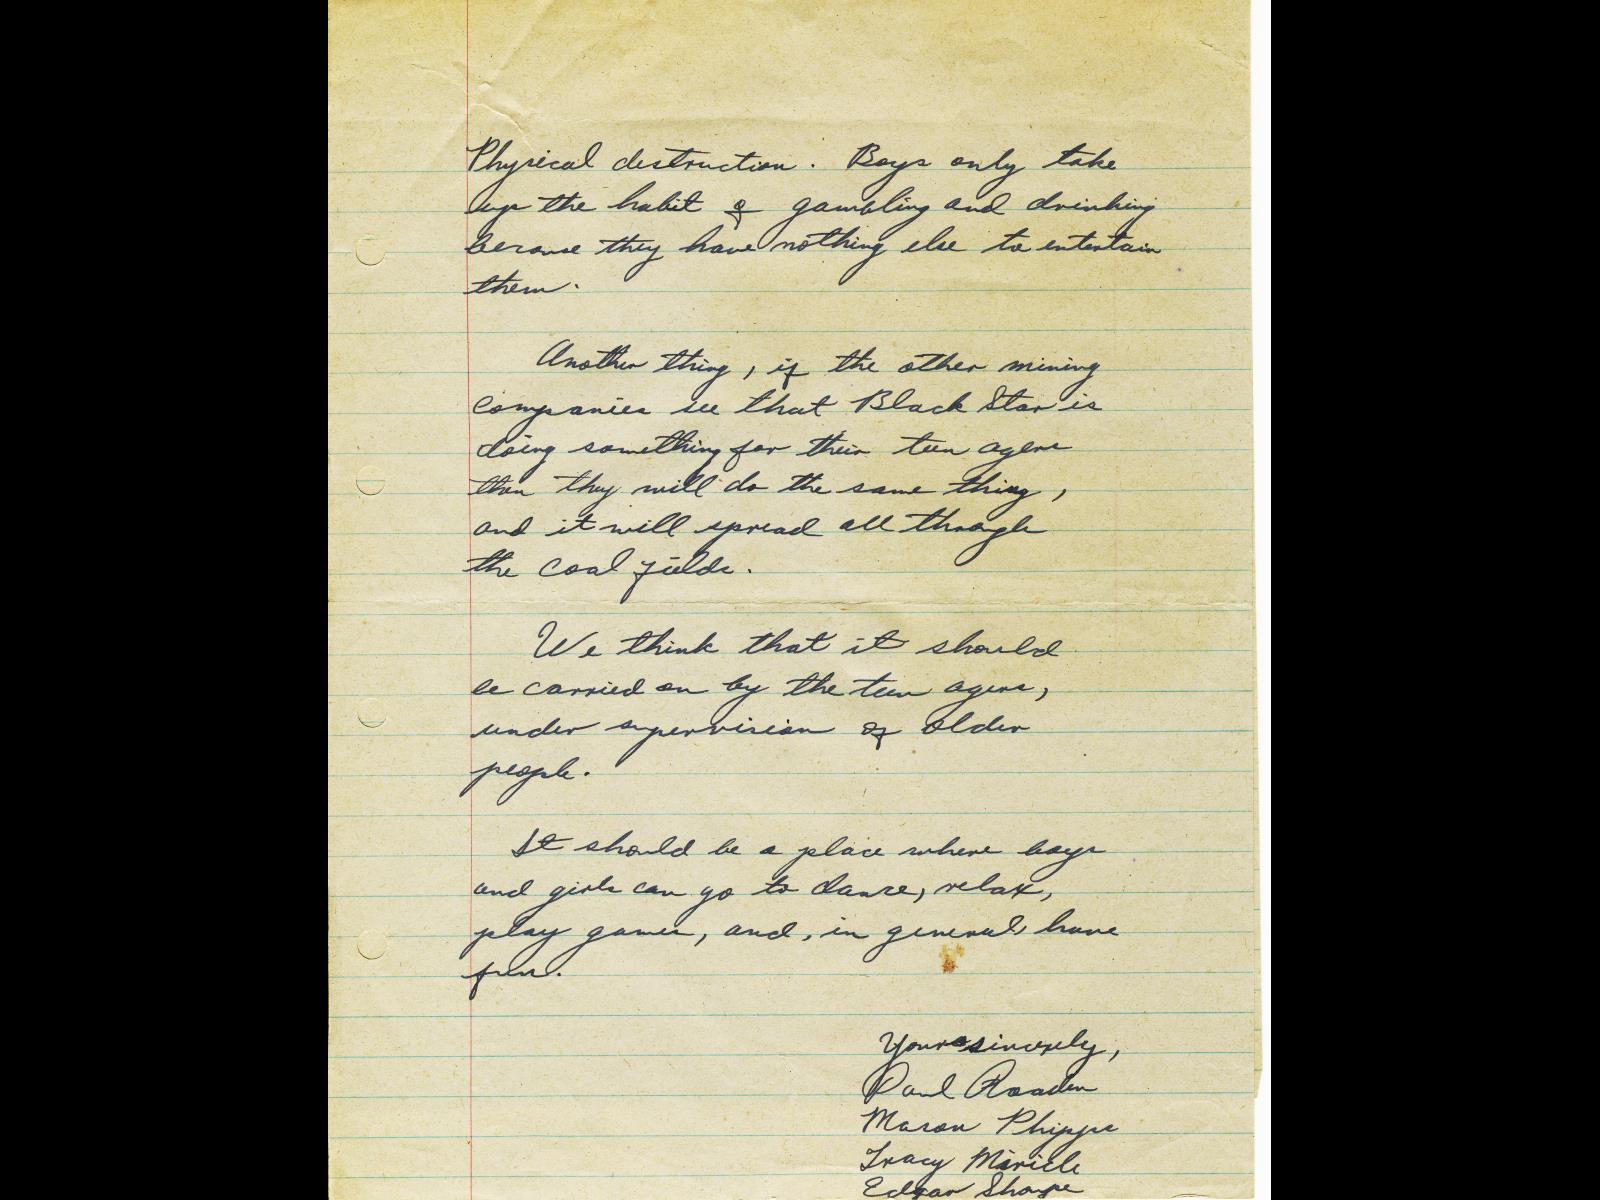 Physical destruction. Boys only take
up the habit of gambling and drinking
because they have nothing else to entertain
them.
Another thing, if the other mining
companies see that Black Star is
doing something for their teen agers
then they will do the same thing,
and it will spread all through
the coal fields.
We think that it should
be carried on by the teen agers,
under supervision of older
people.
It should be a place where boys
and girls can go to dance, relax,
play games, and, in general, have
fun.
Yours sincerely,
Paul Roaden
Mason Phipps
Tracy Miricle
Edgar Sharpe